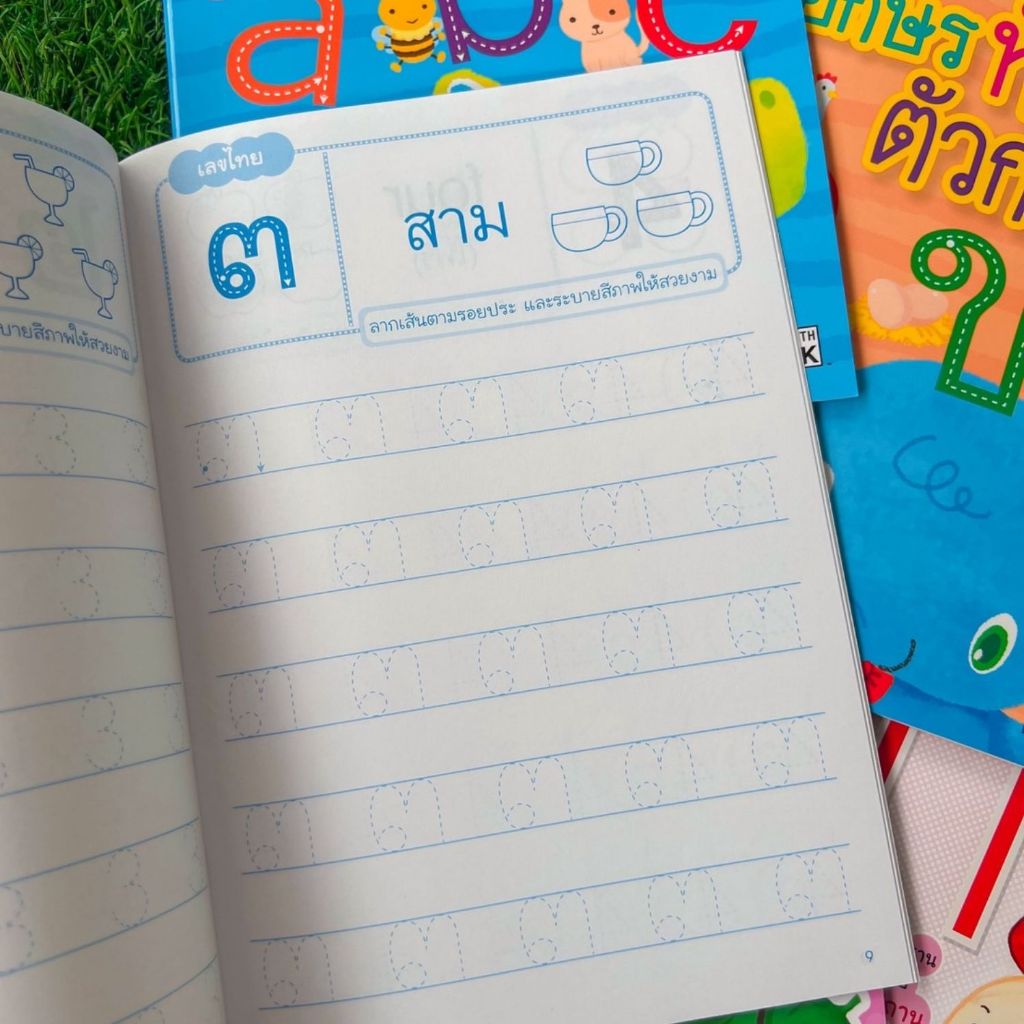 a b c
ตัวก
ข
TH
K
บายสีภาพให้สวยงาม
3
3 3
3
3
3
เลขไทย
๓ สาม
ลากเส้นตามรอยประ และระบายสีภาพให้สวยงาม
๓ ๓ ๓ ๓ ๓
๓ ๓ ๓ ๓ ๓
๓ ๓ ๓ ๓ ๓
๓ ๓ ๓ ๓ ๓
๓ ๓ ๓ ๓ ๓
9